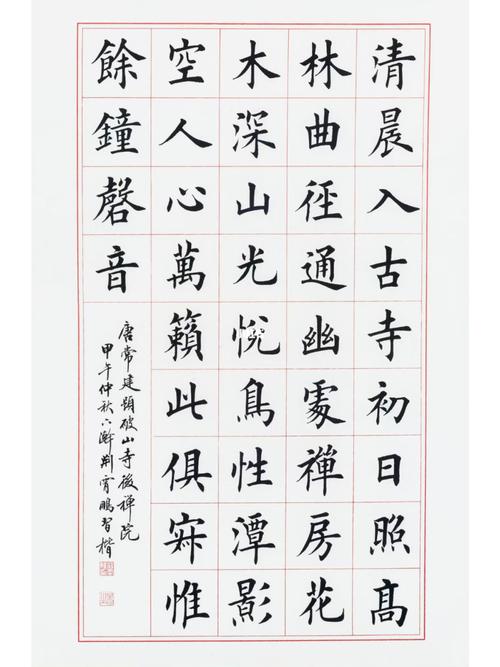 清晨入古寺初日照髙
林曲徑通幽處禪房花
木深山光悅鳥性潭影
空人心萬籟此俱寂惟
餘鐘磬音
唐常建題破山寺後禪院
甲午仲秋六荊霄鵬習楷